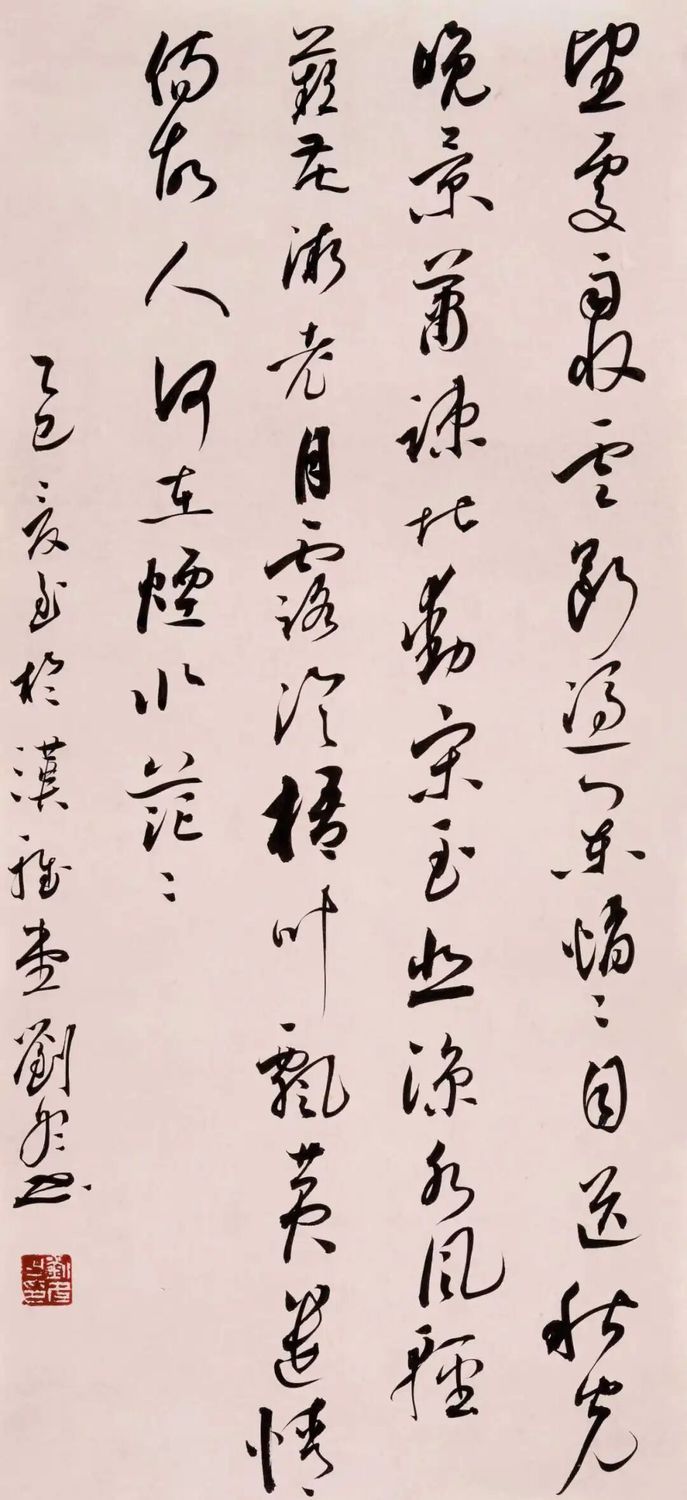 望處雨收雲斷憑闌悄悄目送秋光
晚景蕭疎堪動宋玉悲涼水風輕
蘋花漸老月露冷梧叶飄黃遣情
傷故人何在煙水茫茫
乙巳夏至於漢雅堂劉書